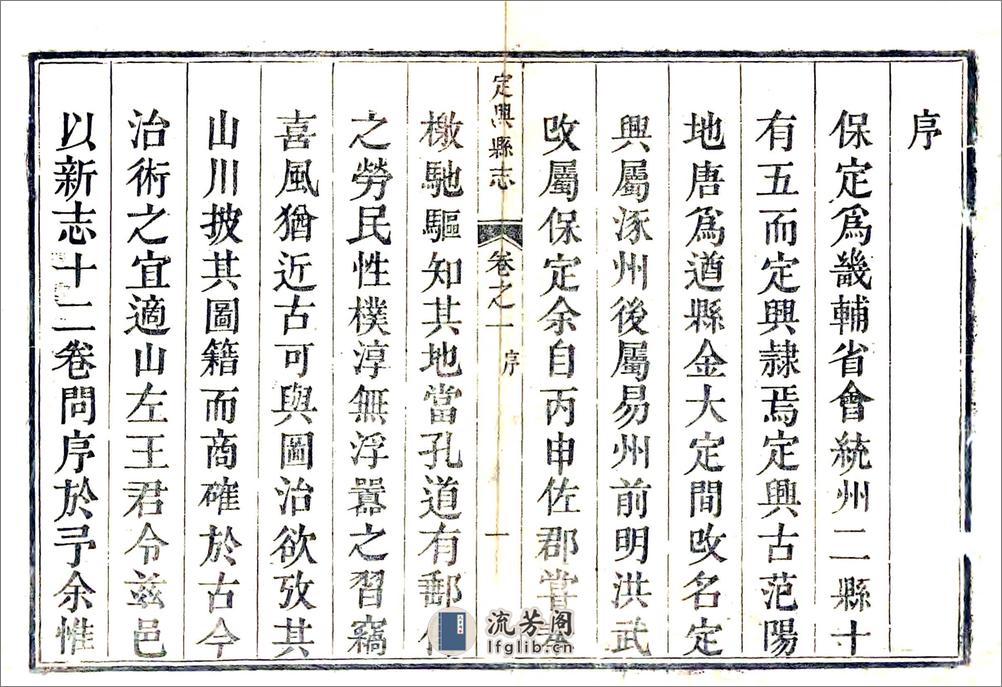 序
保定爲畿輔省會統州二縣十
有五而定興隷焉定興古范陽
地唐爲遒縣金大定間攺名定
興屬涿州後屬易州前明洪武
攺屬保定余自丙申佐郡嘗
定興縣志 卷之一 序 一
檄馳驅知其地當孔道有郵
之勞民性樸淳無浮囂之習竊
喜風猶近古可與圖治欲攷其
山川披其圖籍而商確於古今
治術之宜適山左王君令兹邑
以新志十二卷問序於予余惟
流芳阁
lfglib.cn